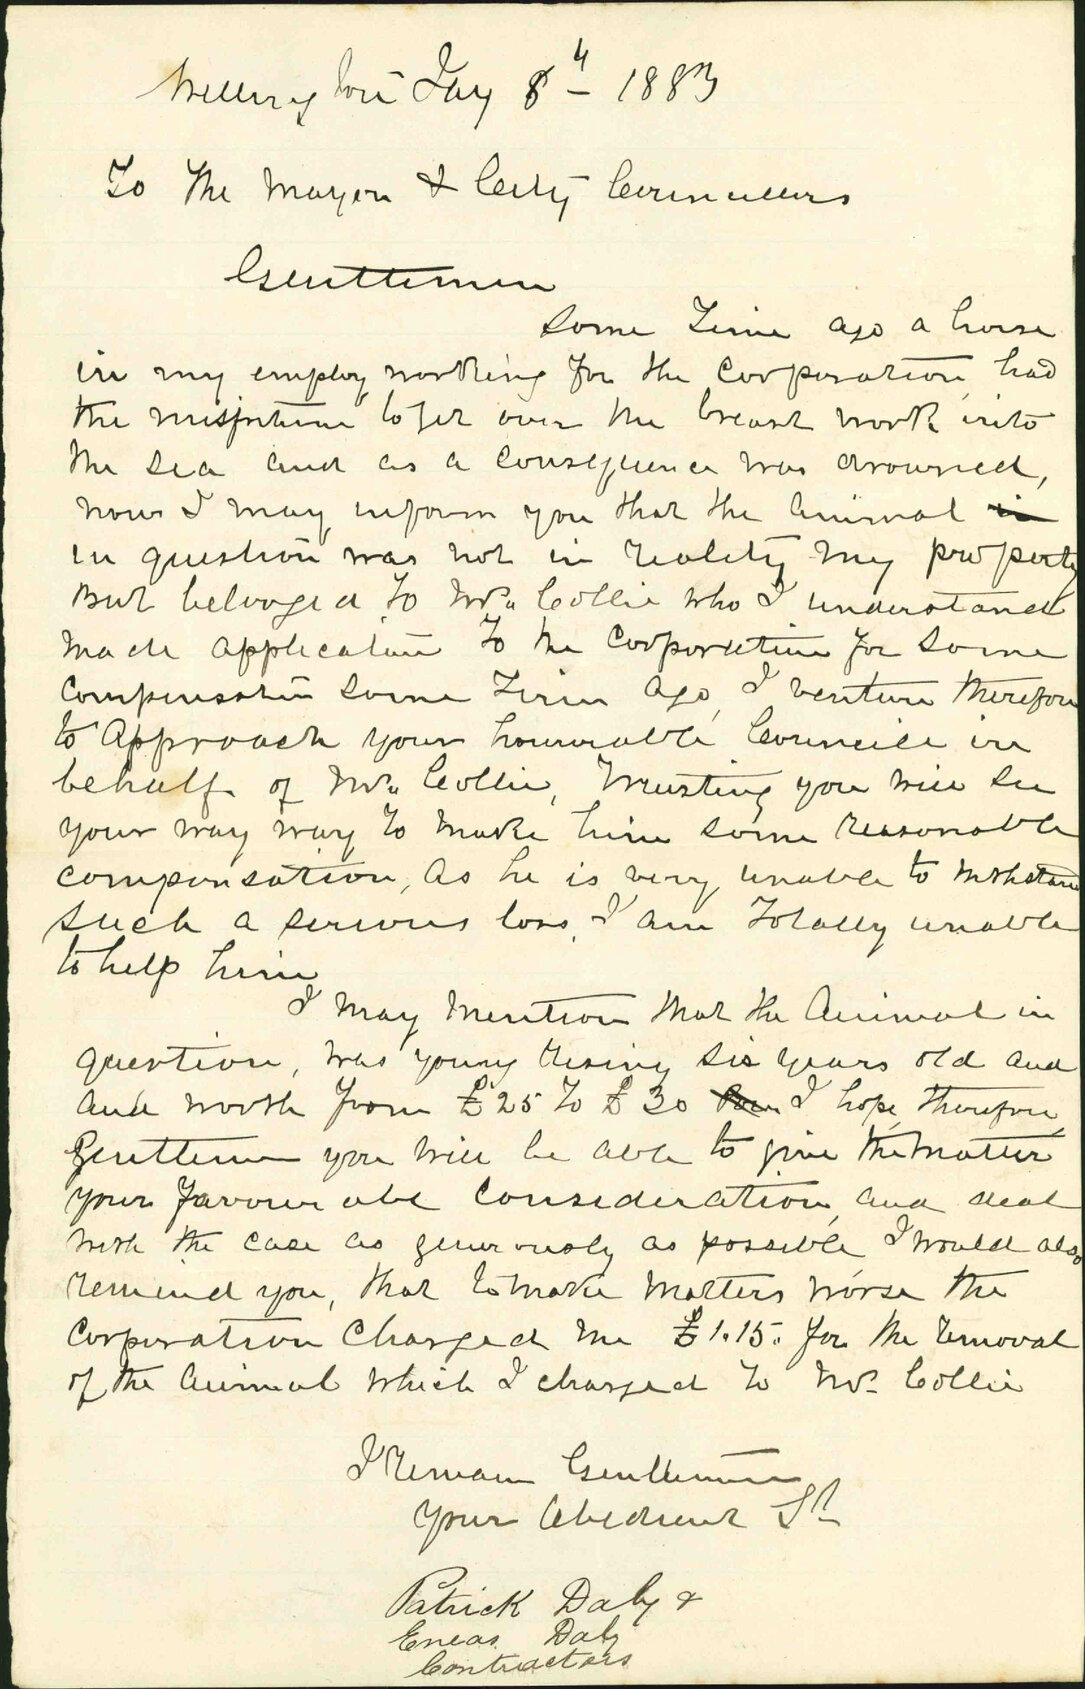 Wellington Jay 8th 1883
To The Mayor & City Councillors
Gentlemen
Some Time ago a horse
in my employ, working for the Corporation, had
the misfortune to get over the breast work into
the sea and as a consequence was drowned,
now I may inform you that the Animal in
in question was not in reality my property
But belonged To Mr. Collie who I understand
made application To the Corporation for some
Compensation some Time ago, I venture therefore
to Approach your honourable Councill in
behalf of Mr. Collie, Trusting you will see
your way way to make him some reasonable
compensation, as he is very unable to withstand
such a serious loss, I am Totally unable
to help him
I may mention that the Animal in
question, was young rising six years old and
and worth from £25 To £30 I hope, therefore,
Gentlemen you will be able to give the matter
your favourable consideration, and deal
with the case as generously as possible I would also
remind you, that to make matters worse the
Corporation Charged me £1.15. for the removal
of the Animal which I charged to Mr. Collie
I remain Gentlemen
Your Obedient St
Patrick Daly &
Eneas Daly
Contractors